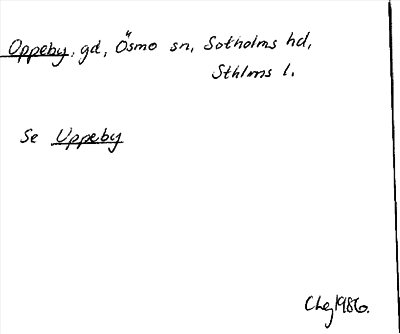 Oppeby, gd, Ösmo sn, Sotholms hd,
Sthlms l.
Se Uppeby